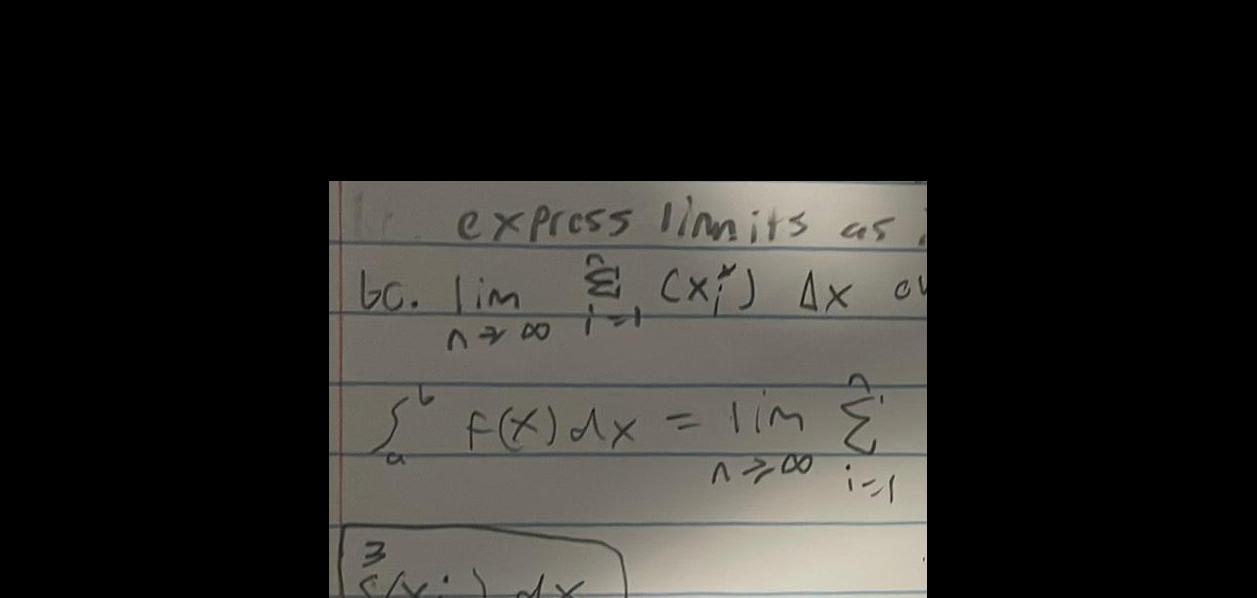 express limits as
6c. lim n→∞ n Σ i=1 (xi*) Δx
∫ a b f(x) dx = lim n→∞ n Σ i=1
3
dx